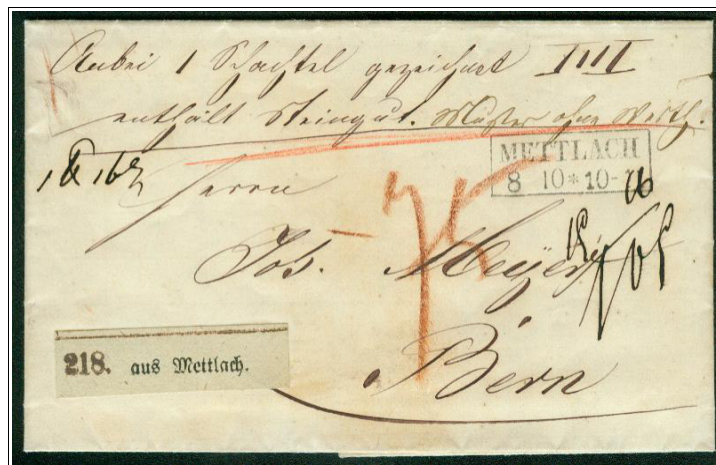 Anbei 1 Schachtel gezeichnet IIII
enthält Steingut. Muster ohne Werth.
METTLACH
8 10 * 10-
Herrn
Jos. Meyer
Bern
218. aus Mettlach.